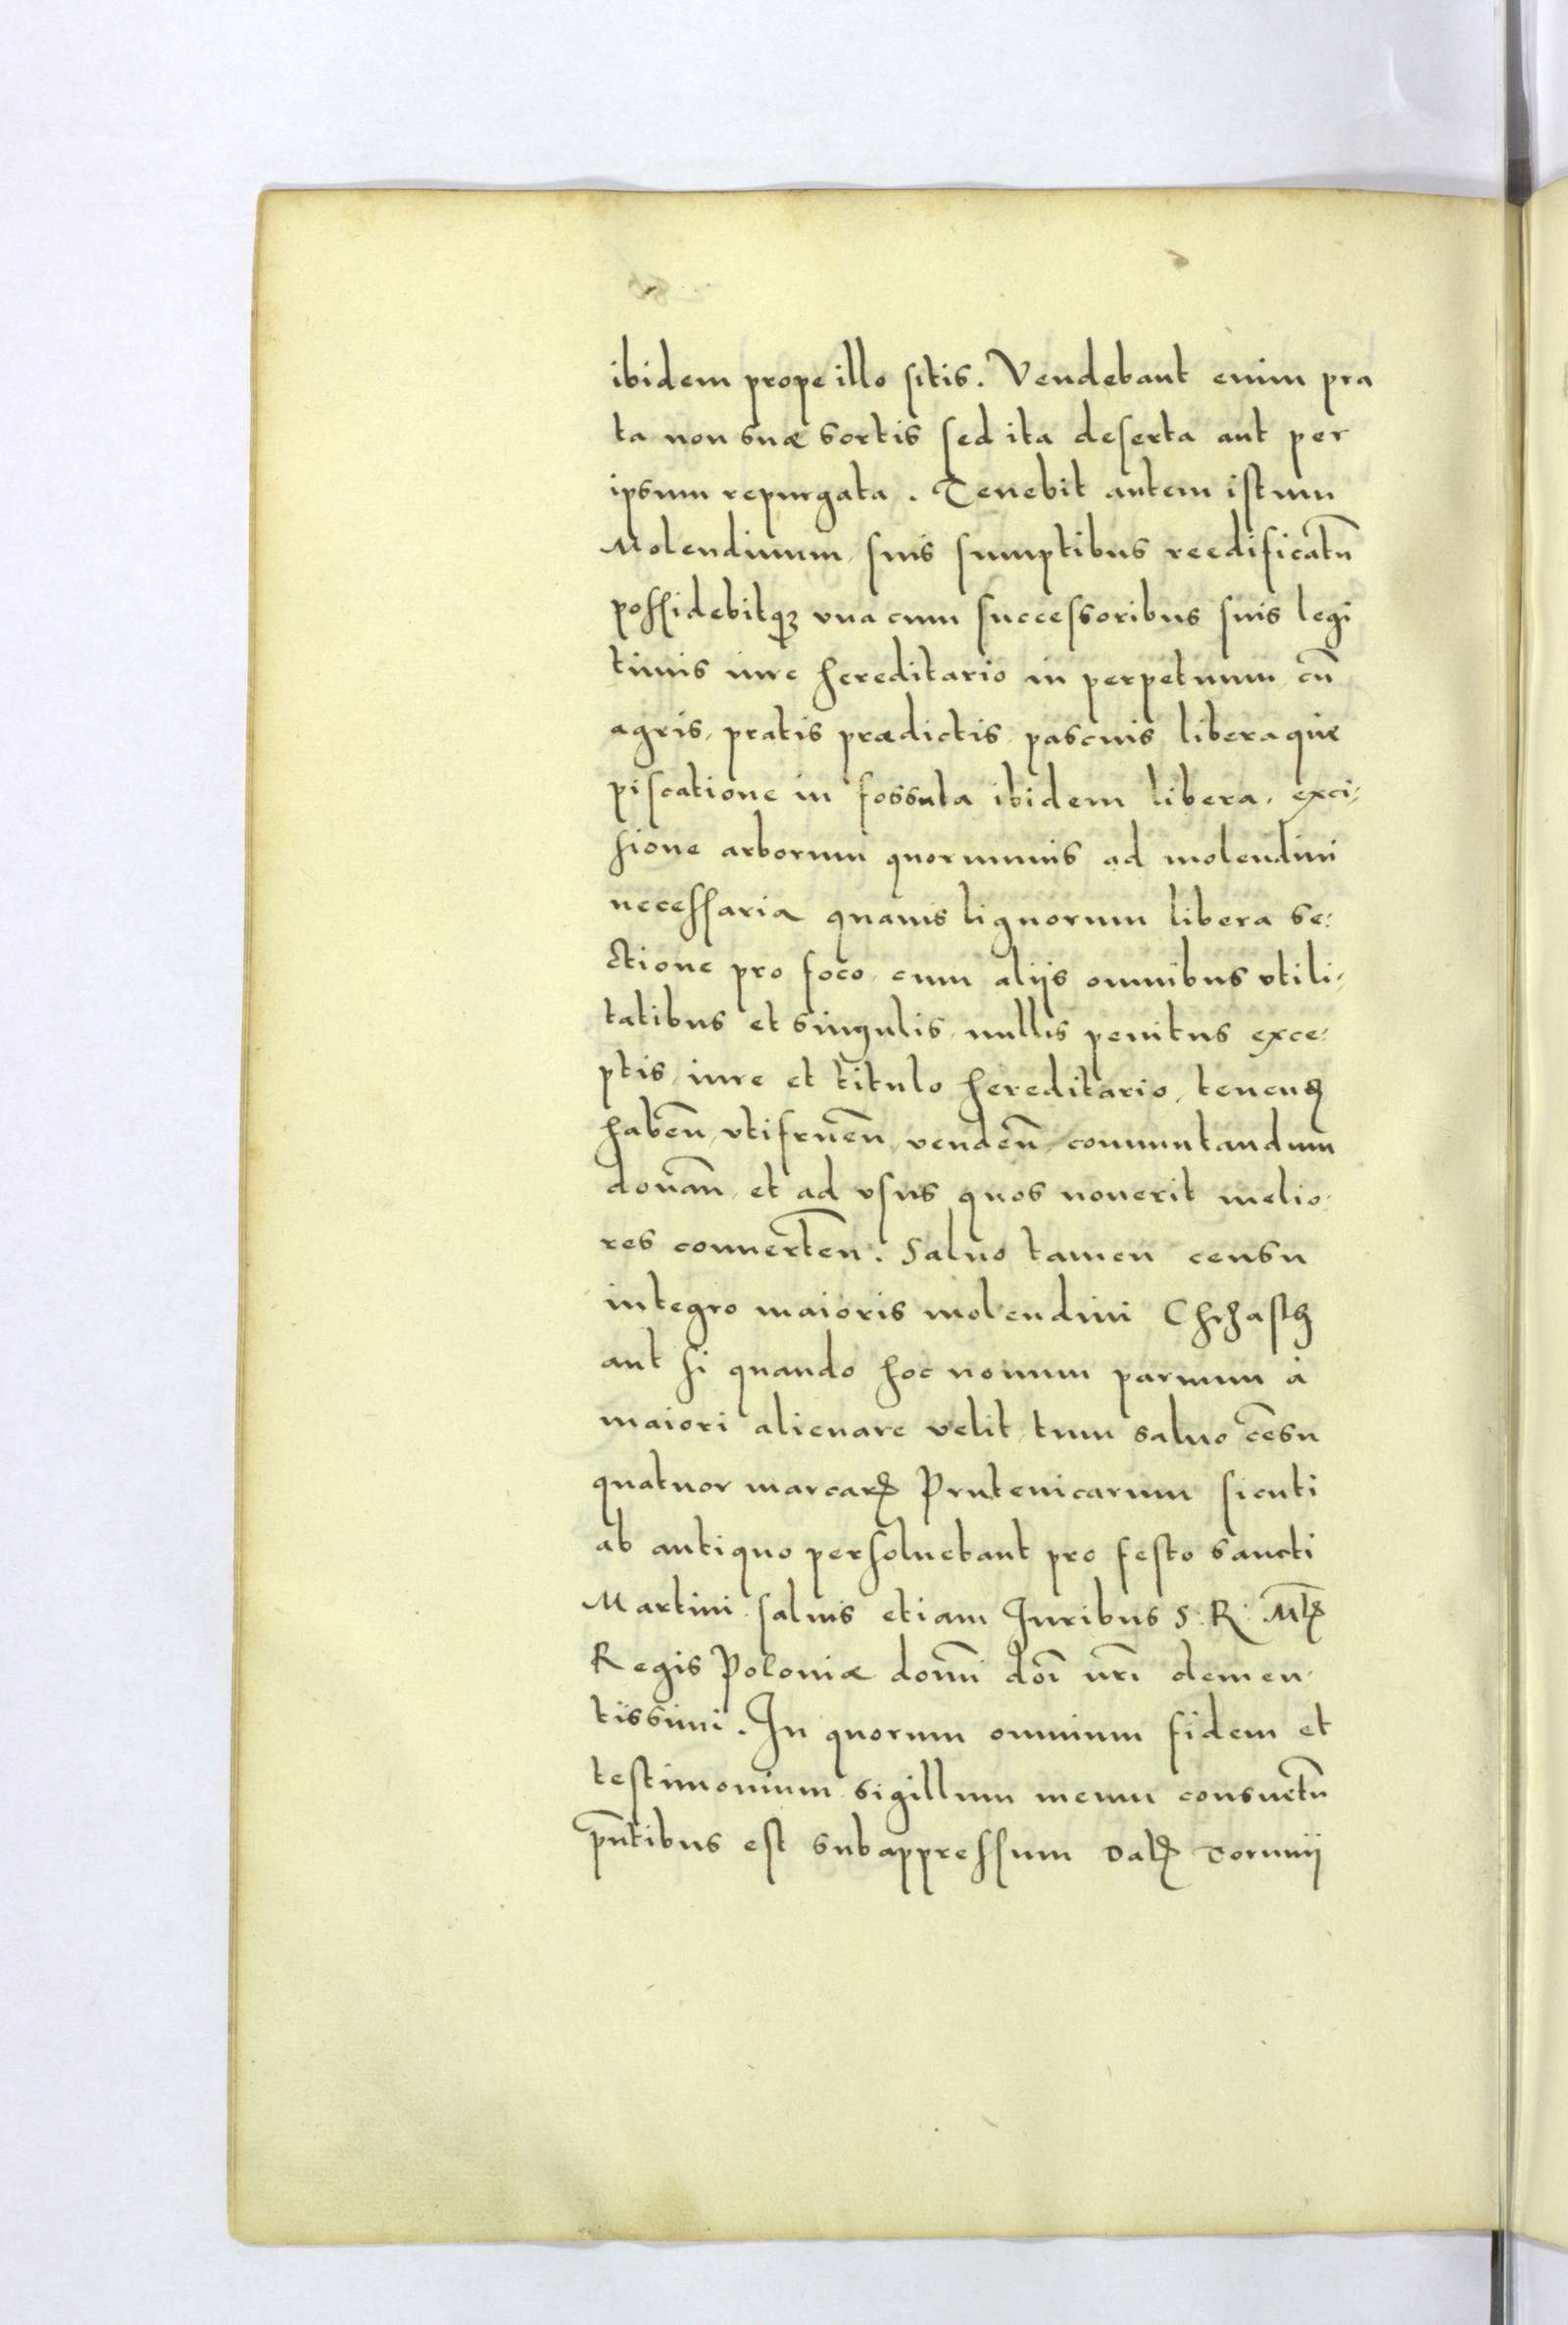 ibidem prope illo sitis. Vendebant enim pra
ta non suæ sortis sed ita deserta aut per
ipsum repurgata. Tenebit autem istum
Molendinum, suis sumptibus reedificatū
possidebitqꝫ vna cum successoribus suis legi
timis iure hereditario in perpetuum, cū
agris, pratis prædictis pascuis liberaque
piscatione in fossata ibidem libera, exci-
sione arborum quorumuis ad molendini
necessaria quauis lignorum libera se:
ctione pro foco, cum alijs omnibus vtili-
tatibus et singulis, nullis penitus exce:
ptis, iure et titulo hereditario, tenenđ
habeñ, vtifrueñ, vendeñ, commutandum
donañ, et ad vsus quos nouerit melio:
res conuerteñ. Saluo tamen censu
integro maioris molendini
aut si quando hoc nouum paruum à
maiori alienare velit, tum saluo cēsu
quatuor marcarꝝ Prutenicarum sicuti
ab antiquo persoluebant pro festo sancti
Martini, saluis etiam Iuribus S: R: Mtꝭ
Regis Poloniæ domī doī nrī clemen-
tissimi. In quorum omnium fidem et
testimonium sigillum meum consuetū
pn̄tibus est subappressum Datꝭ Torunij